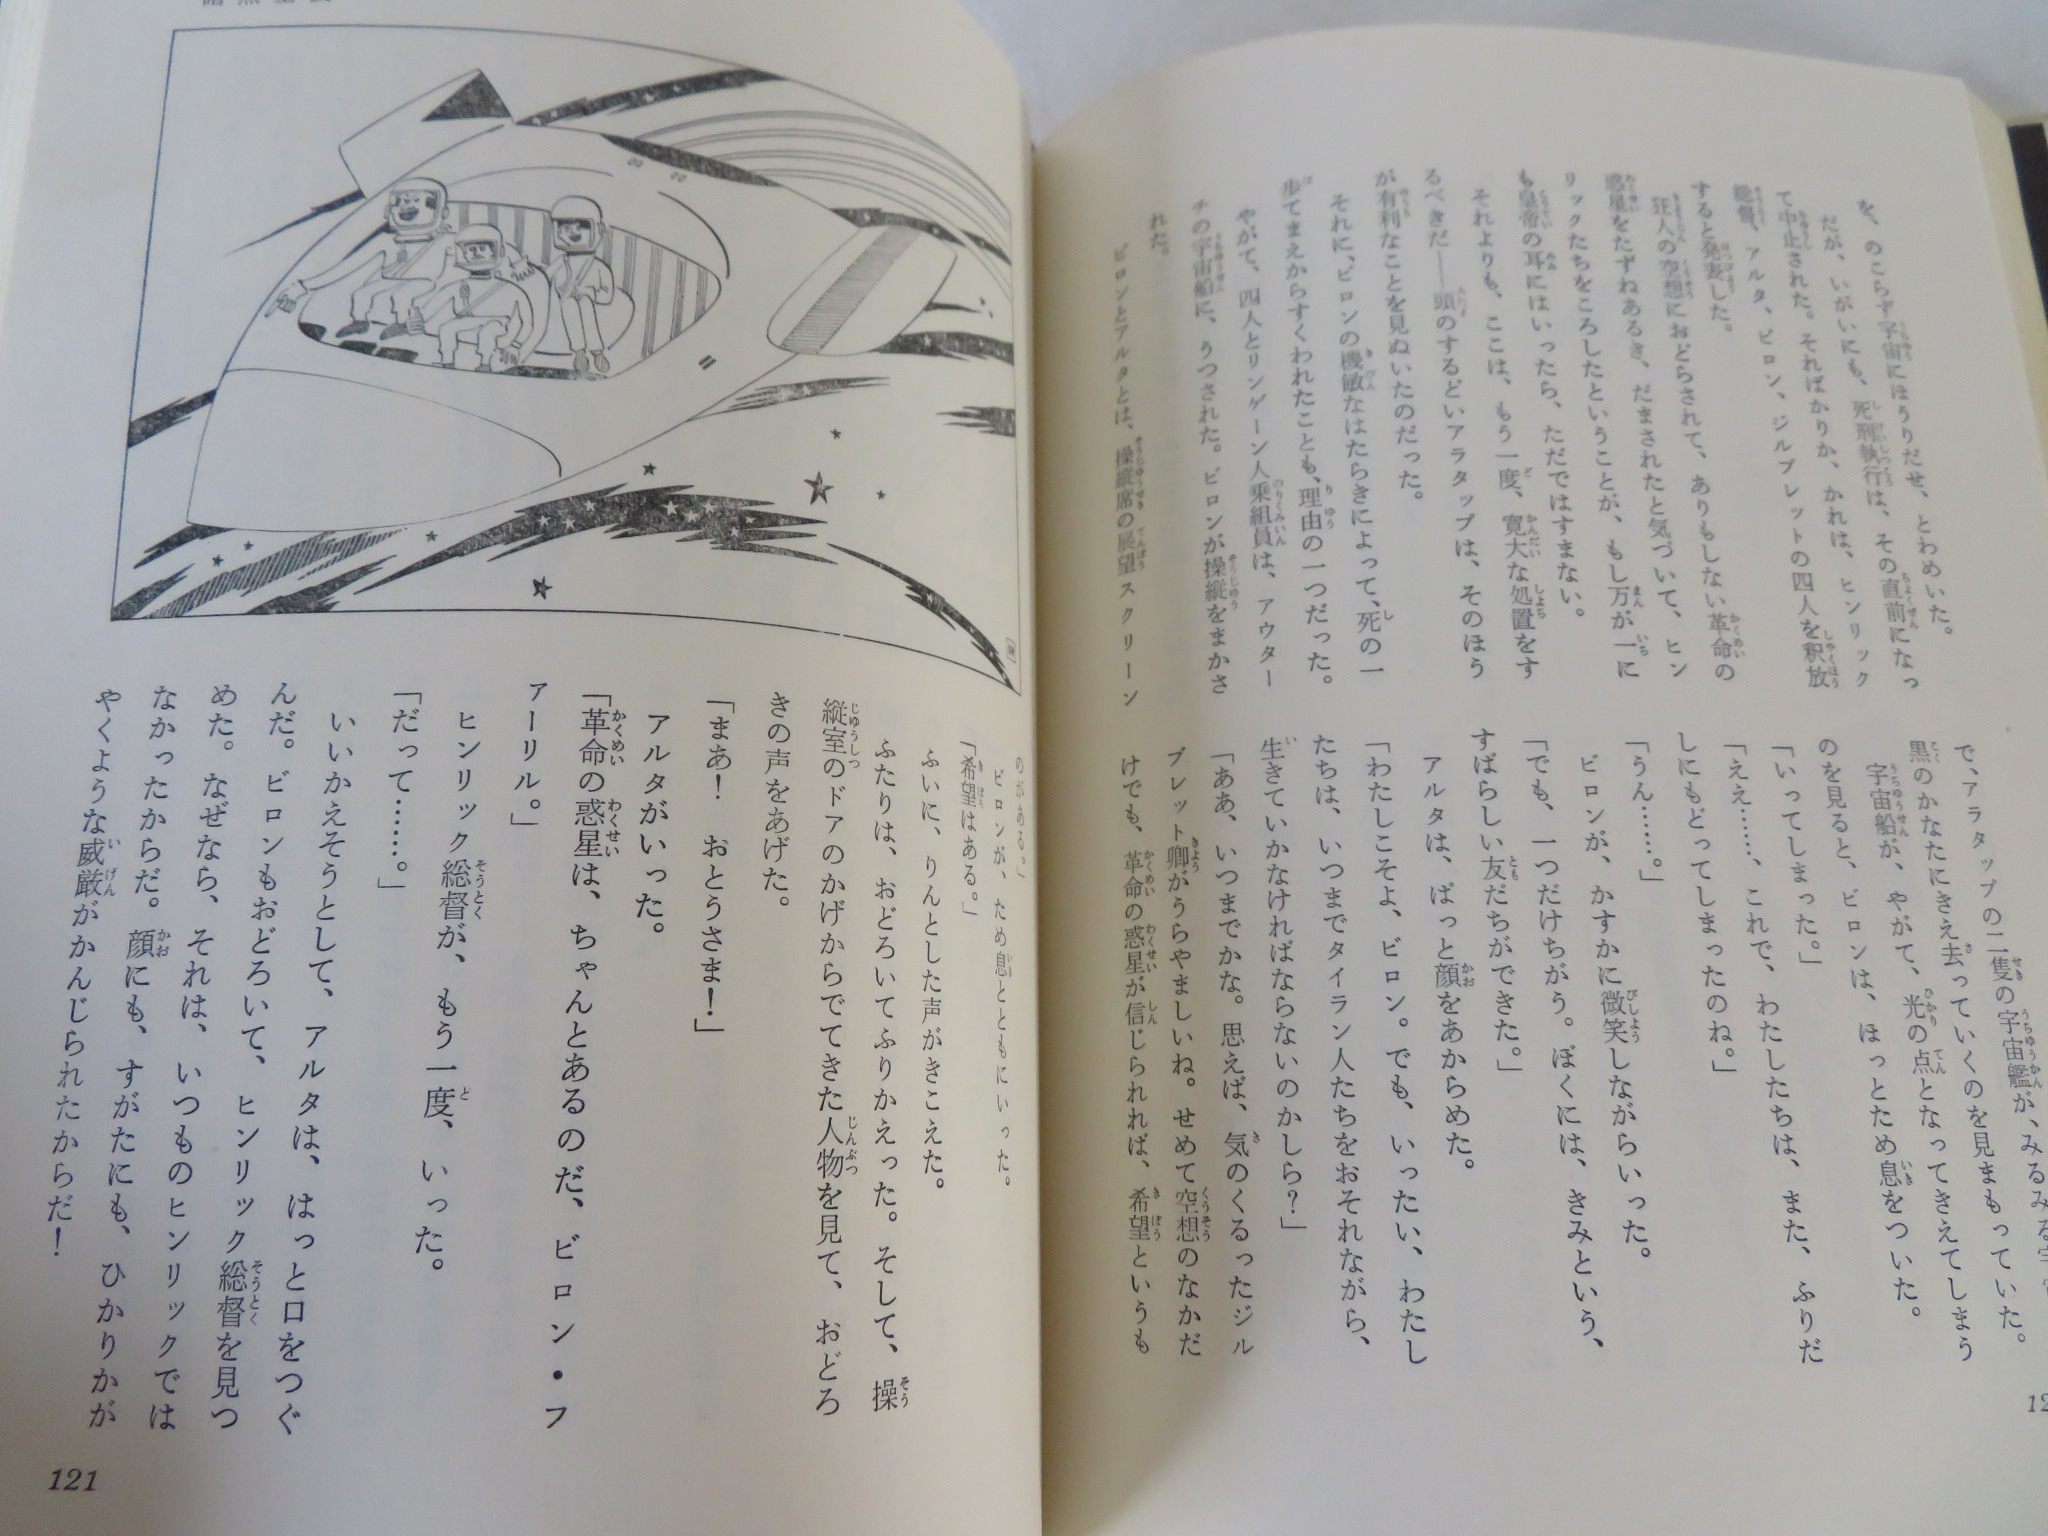 を、のこらず宇宙にほうりだせ、とわめいた。
だが、いがいにも、死刑執行は、その直前になっ
て中止された。そればかりか、かれは、ヒンリック
総督、アルタ、ビロン、ジルブレットの四人を釈放
すると発表した。
狂人の空想におどらされて、ありもしない革命の
惑星をたずねあるき、だまされたと気づいて、ヒン
リックたちをころしたということが、もし万が一に
も皇帝の耳にはいったら、ただではすまない。
それよりも、ここは、もう一度、寛大な処置をす
るべきだ――頭のするどいアラタップは、そのほう
が有利なことを見ぬいたのだった。
それに、ビロンの機敏なはたらきによって、死の一
歩てまえからすくわれたことも、理由の一つだった。
やがて、四人とリンゲーン人乗組員は、アウター
チの宇宙船に、うつされた。ビロンが操縦をまかさ
れた。
ビロンとアルタとは、操縦席の展望スクリーン
で、アラタップの二隻の宇宙艦が、みるみる宇
黒のかなたにきえ去っていくのを見まもっていた。
宇宙船が、やがて、光の点となってきえてしまう
のを見ると、ビロンは、ほっとため息をついた。
「いってしまった。」
「ええ……、これで、わたしたちは、また、ふりだ
しにもどってしまったのね。」
「うん……。」
ビロンが、かすかに微笑しながらいった。
「でも、一つだけちがう。ぼくには、きみという、
すばらしい友だちができた。」
アルタは、ぱっと顔をあからめた。
「わたしこそよ、ビロン。でも、いったい、わたし
たちは、いつまでタイラン人たちをおそれながら、
生きていかなければならないのかしら？」
「ああ、いつまでかな。思えば、気のくるったジル
ブレット卿がうらやましいね。せめて空想のなかだ
けでも、革命の惑星が信じられれば、希望というも
12
のがある。」
ビロンが、ため息とともにいった。
「希望はある。」
ふいに、りんとした声がきこえた。
ふたりは、おどろいてふりかえった。そして、操
縦室のドアのかげからでてきた人物を見て、おどろ
きの声をあげた。
「まあ！　おとうさま！」
アルタがいった。
「革命の惑星は、ちゃんとあるのだ、ビロン・フ
ァーリル。」
ヒンリック総督が、もう一度、いった。
「だって……。」
いいかえそうとして、アルタは、はっと口をつぐ
んだ。ビロンもおどろいて、ヒンリック総督を見つ
めた。なぜなら、それは、いつものヒンリックでは
なかったからだ。顔にも、すがたにも、ひかりかが
やくような威厳がかんじられたからだ！
121